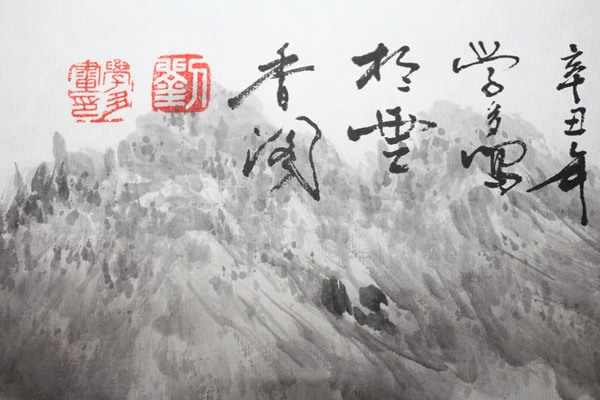 辛丑年
学多写
於云
香阁
劉
學多
畫印